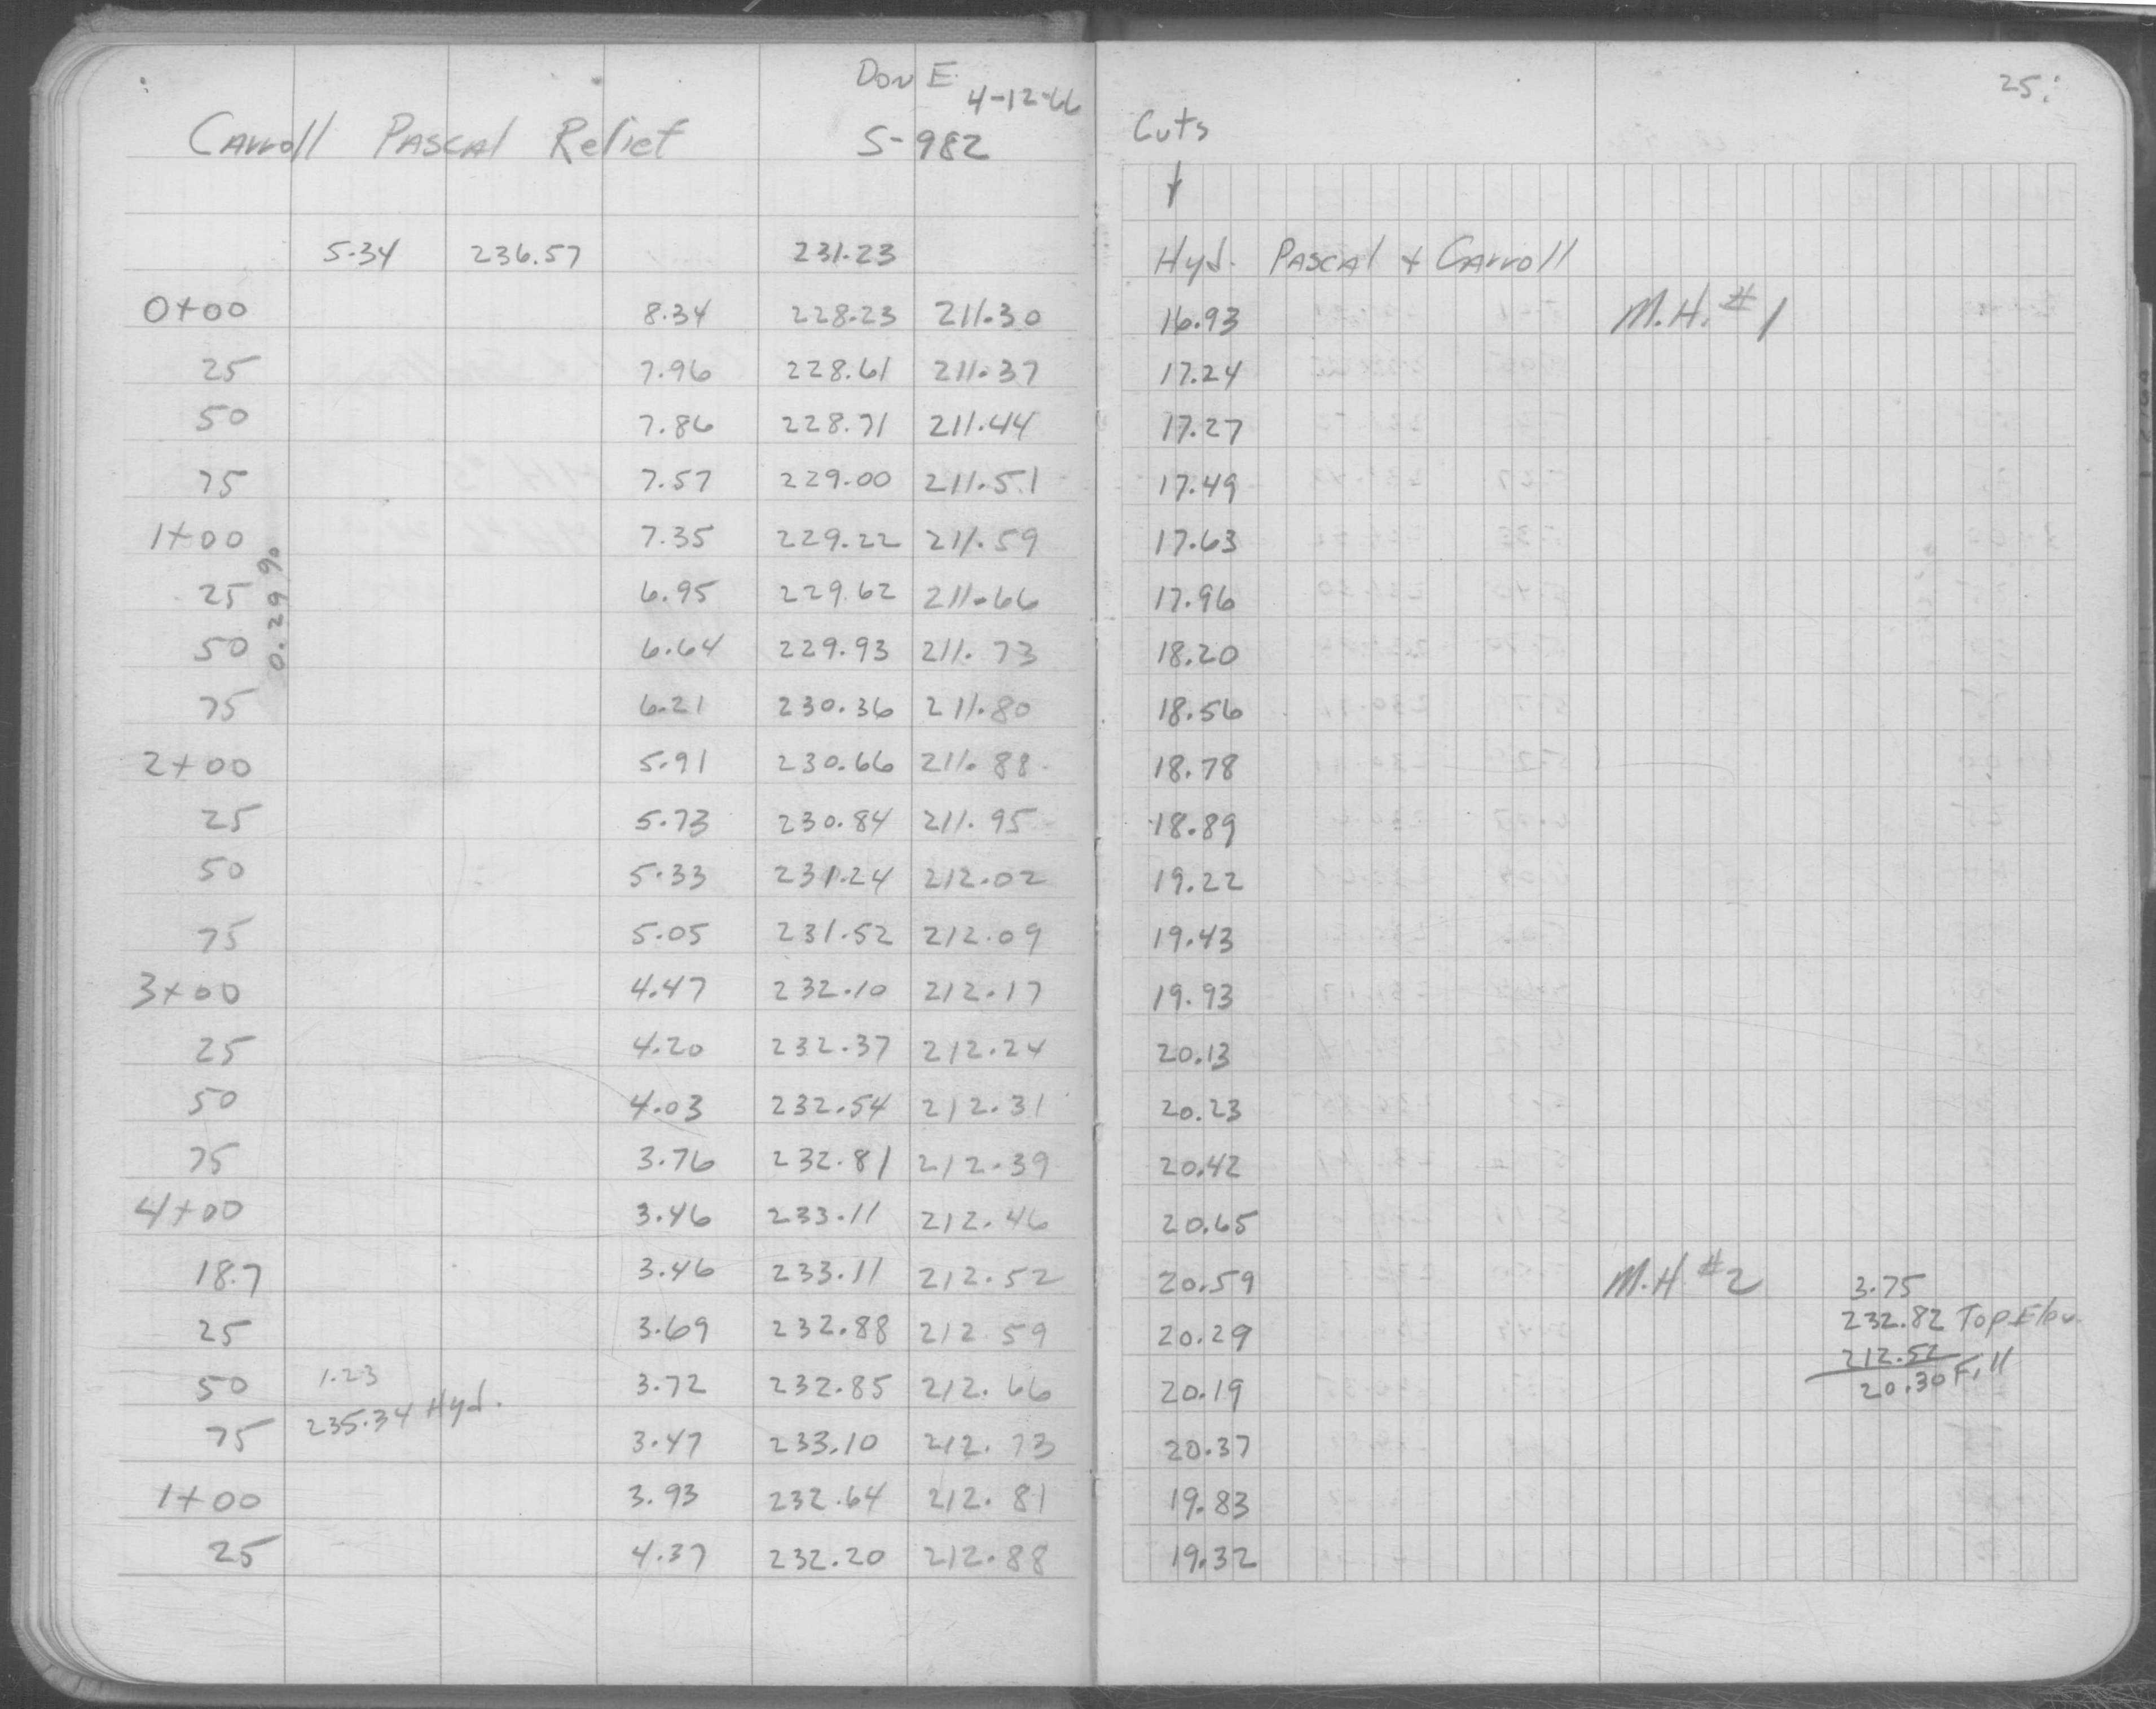 Don E.
4-12-66
25
Carroll Pascal Relief S-982 Cuts
5.34 236.57 231.23 Hyd. Pascal + Carroll
0+00 8.34 228.23 211.30 16.93 M.H. #1
25 7.96 228.61 211.37 17.24
50 7.86 228.71 211.44 17.27
75 7.57 229.00 211.51 17.49
1+00 7.35 229.22 211.59 17.63
25 6.95 229.62 211.66 17.96
0.29%
50 6.64 229.93 211.73 18.20
75 6.21 230.36 211.80 18.56
2+00 5.91 230.66 211.88 18.78
25 5.73 230.84 211.95 18.89
50 5.33 231.24 212.02 19.22
75 5.05 231.52 212.09 19.43
3+00 4.47 232.10 212.17 19.93
25 4.20 232.37 212.24 20.13
50 4.03 232.54 212.31 20.23
75 3.76 232.81 212.39 20.42
4+00 3.46 233.11 212.46 20.65
18.7 3.46 233.11 212.52 20.59 M.H #2 3.75
25 3.69 232.88 212.59 20.29 232.82 Top Elev.
212.52
50 1.23 3.72 232.85 212.66 20.19 20.30 Fill
235.34 Hyd.
75 3.47 233.10 212.73 20.37
1+00 3.93 232.64 212.81 19.83
25 4.37 232.20 212.88 19.32